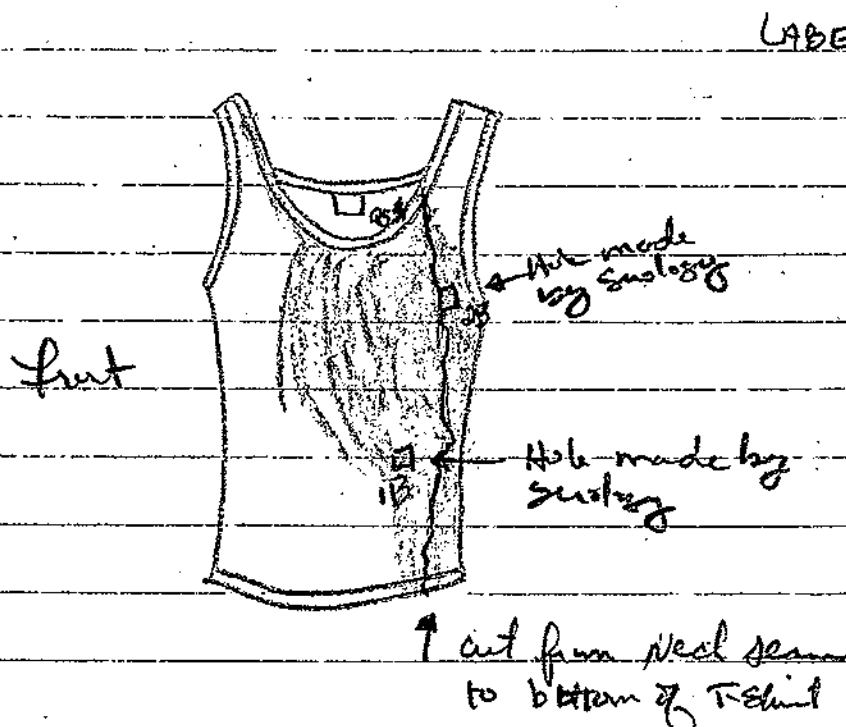 LABE
Hole made
by serology
2B
front
Hole made by
serology
1B
cut from neck seam
to bottom of T-Shirt